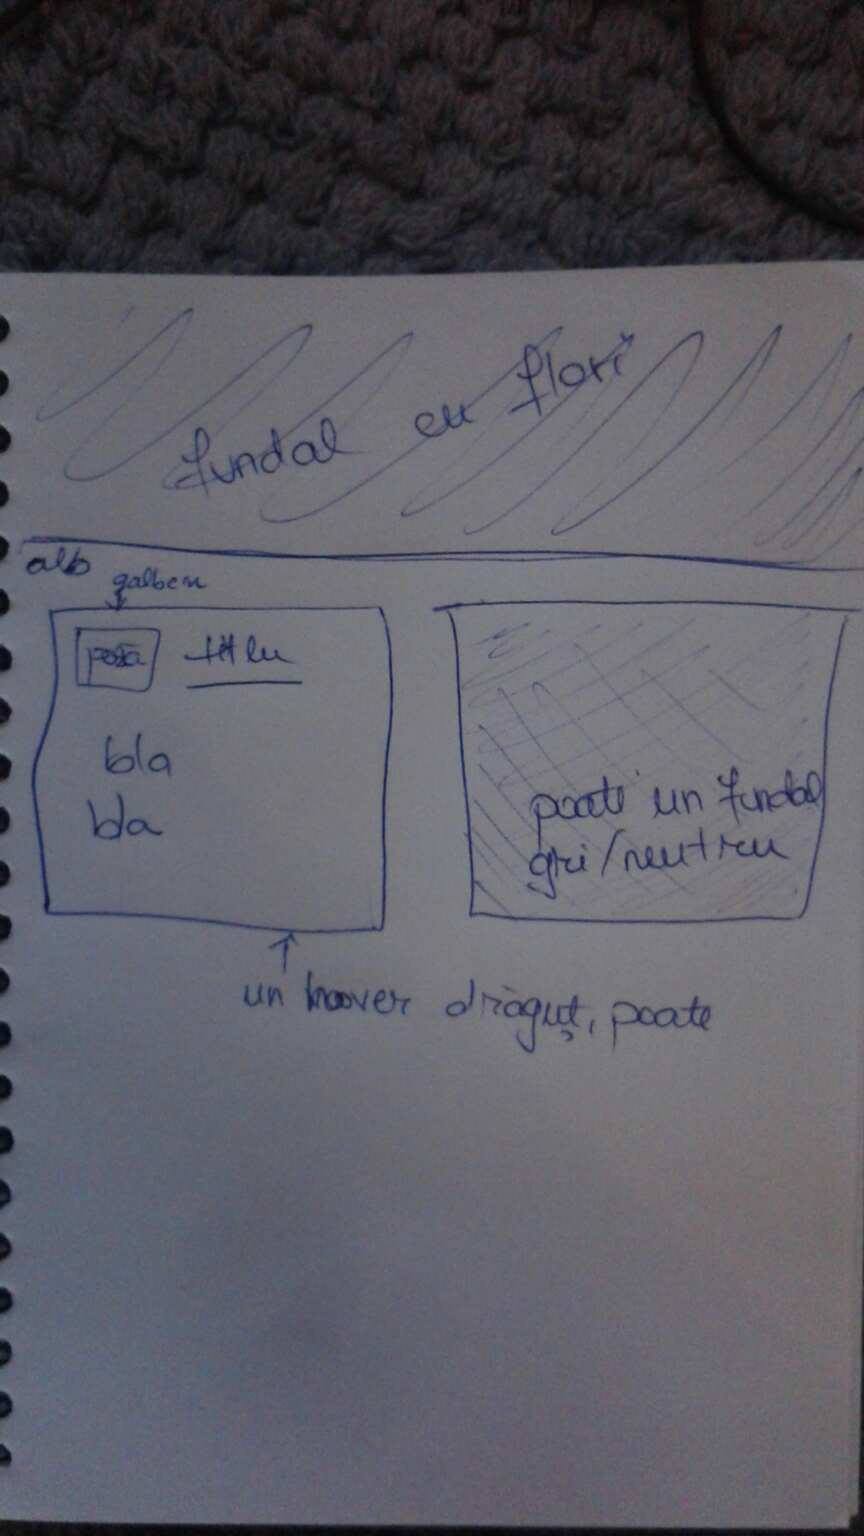 fundal cu flori
alb
galben
poză titlu
bla
bla
poate un fundal
gri/neutru
un hoover drăguț, poate